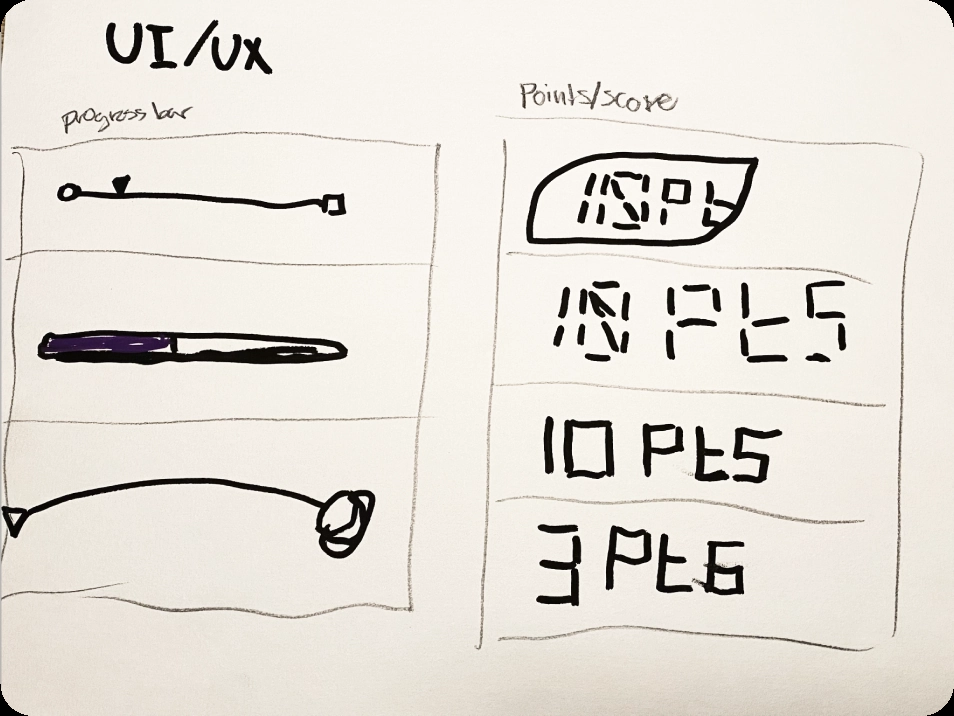 UI/UX
progress bar
Points/score
10 Pt
10 PtS
10 PtS
3 Pt6